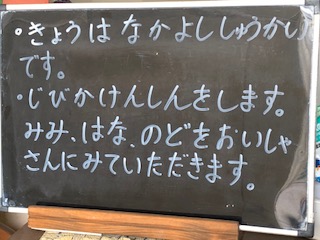 ・きょうは なかよししゅうかい
です。
・じびかけんしんをします。
みみ、はな、のどをおいしゃ
さんにみていただきます。